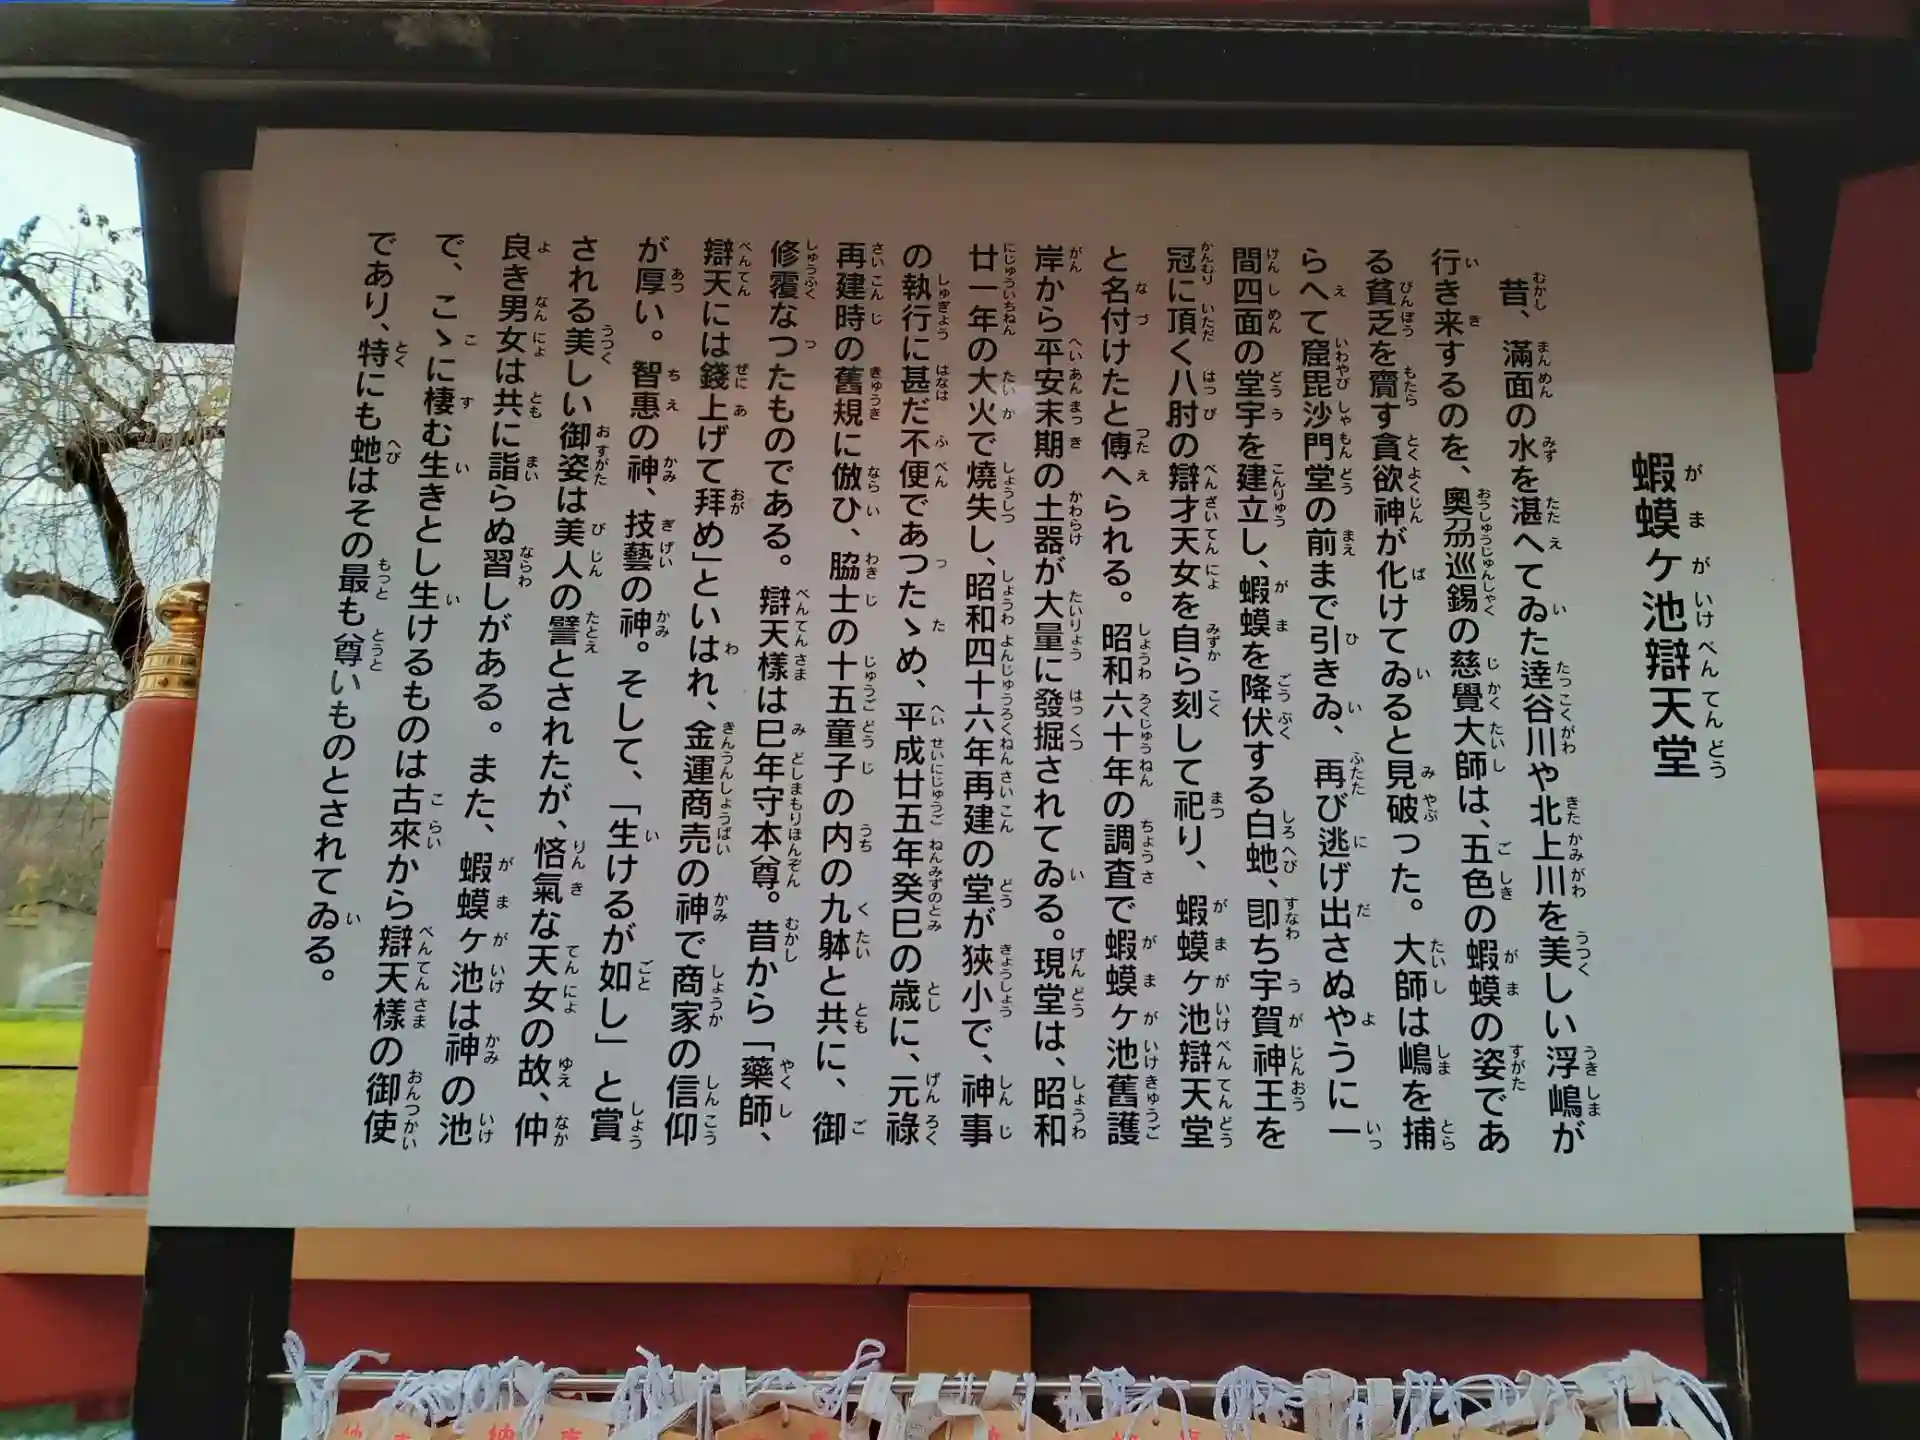 蝦蟆ケ池辯天堂
昔、滿面の水を湛へてゐた達谷川や北上川を美しい浮嶋が
行き来するのを、奥刕巡錫の慈覺大師は、五色の蝦蟆の姿であ
る貧乏を齎す貪欲神が化けてゐると見破った。大師は嶋を捕
らへて窟毘沙門堂の前まで引きゐ、再び逃げ出さぬやうに一
間四面の堂宇を建立し、蝦蟆を降伏する白虵、卽ち宇賀神王を
冠に頂く八肘の辯才天女を自ら刻して祀り、蝦蟆ケ池辯天堂
と名付けたと傳へられる。昭和六十年の調査で蝦蟆ケ池舊護
岸から平安末期の土器が大量に發掘されてゐる。現堂は、昭和
廿一年の大火で燒失し、昭和四十六年再建の堂が狹小で、神事
の執行に甚だ不便であつたゝめ、平成廿五年癸巳の歳に、元祿
再建時の舊規に倣ひ、脇士の十五童子の内の九躰と共に、御
修覆なつたものである。辯天樣は巳年守本尊。昔から「藥師、
辯天には錢上げて拜め」といはれ、金運商売の神で商家の信仰
が厚い。智惠の神、技藝の神。そして、「生けるが如し」と賞
される美しい御姿は美人の譬とされたが、悋氣な天女の故、仲
良き男女は共に詣らぬ習しがある。また、蝦蟆ケ池は神の池
で、こゝに棲む生きとし生けるものは古來から辯天樣の御使
であり、特にも虵はその最も尊いものとされてゐる。